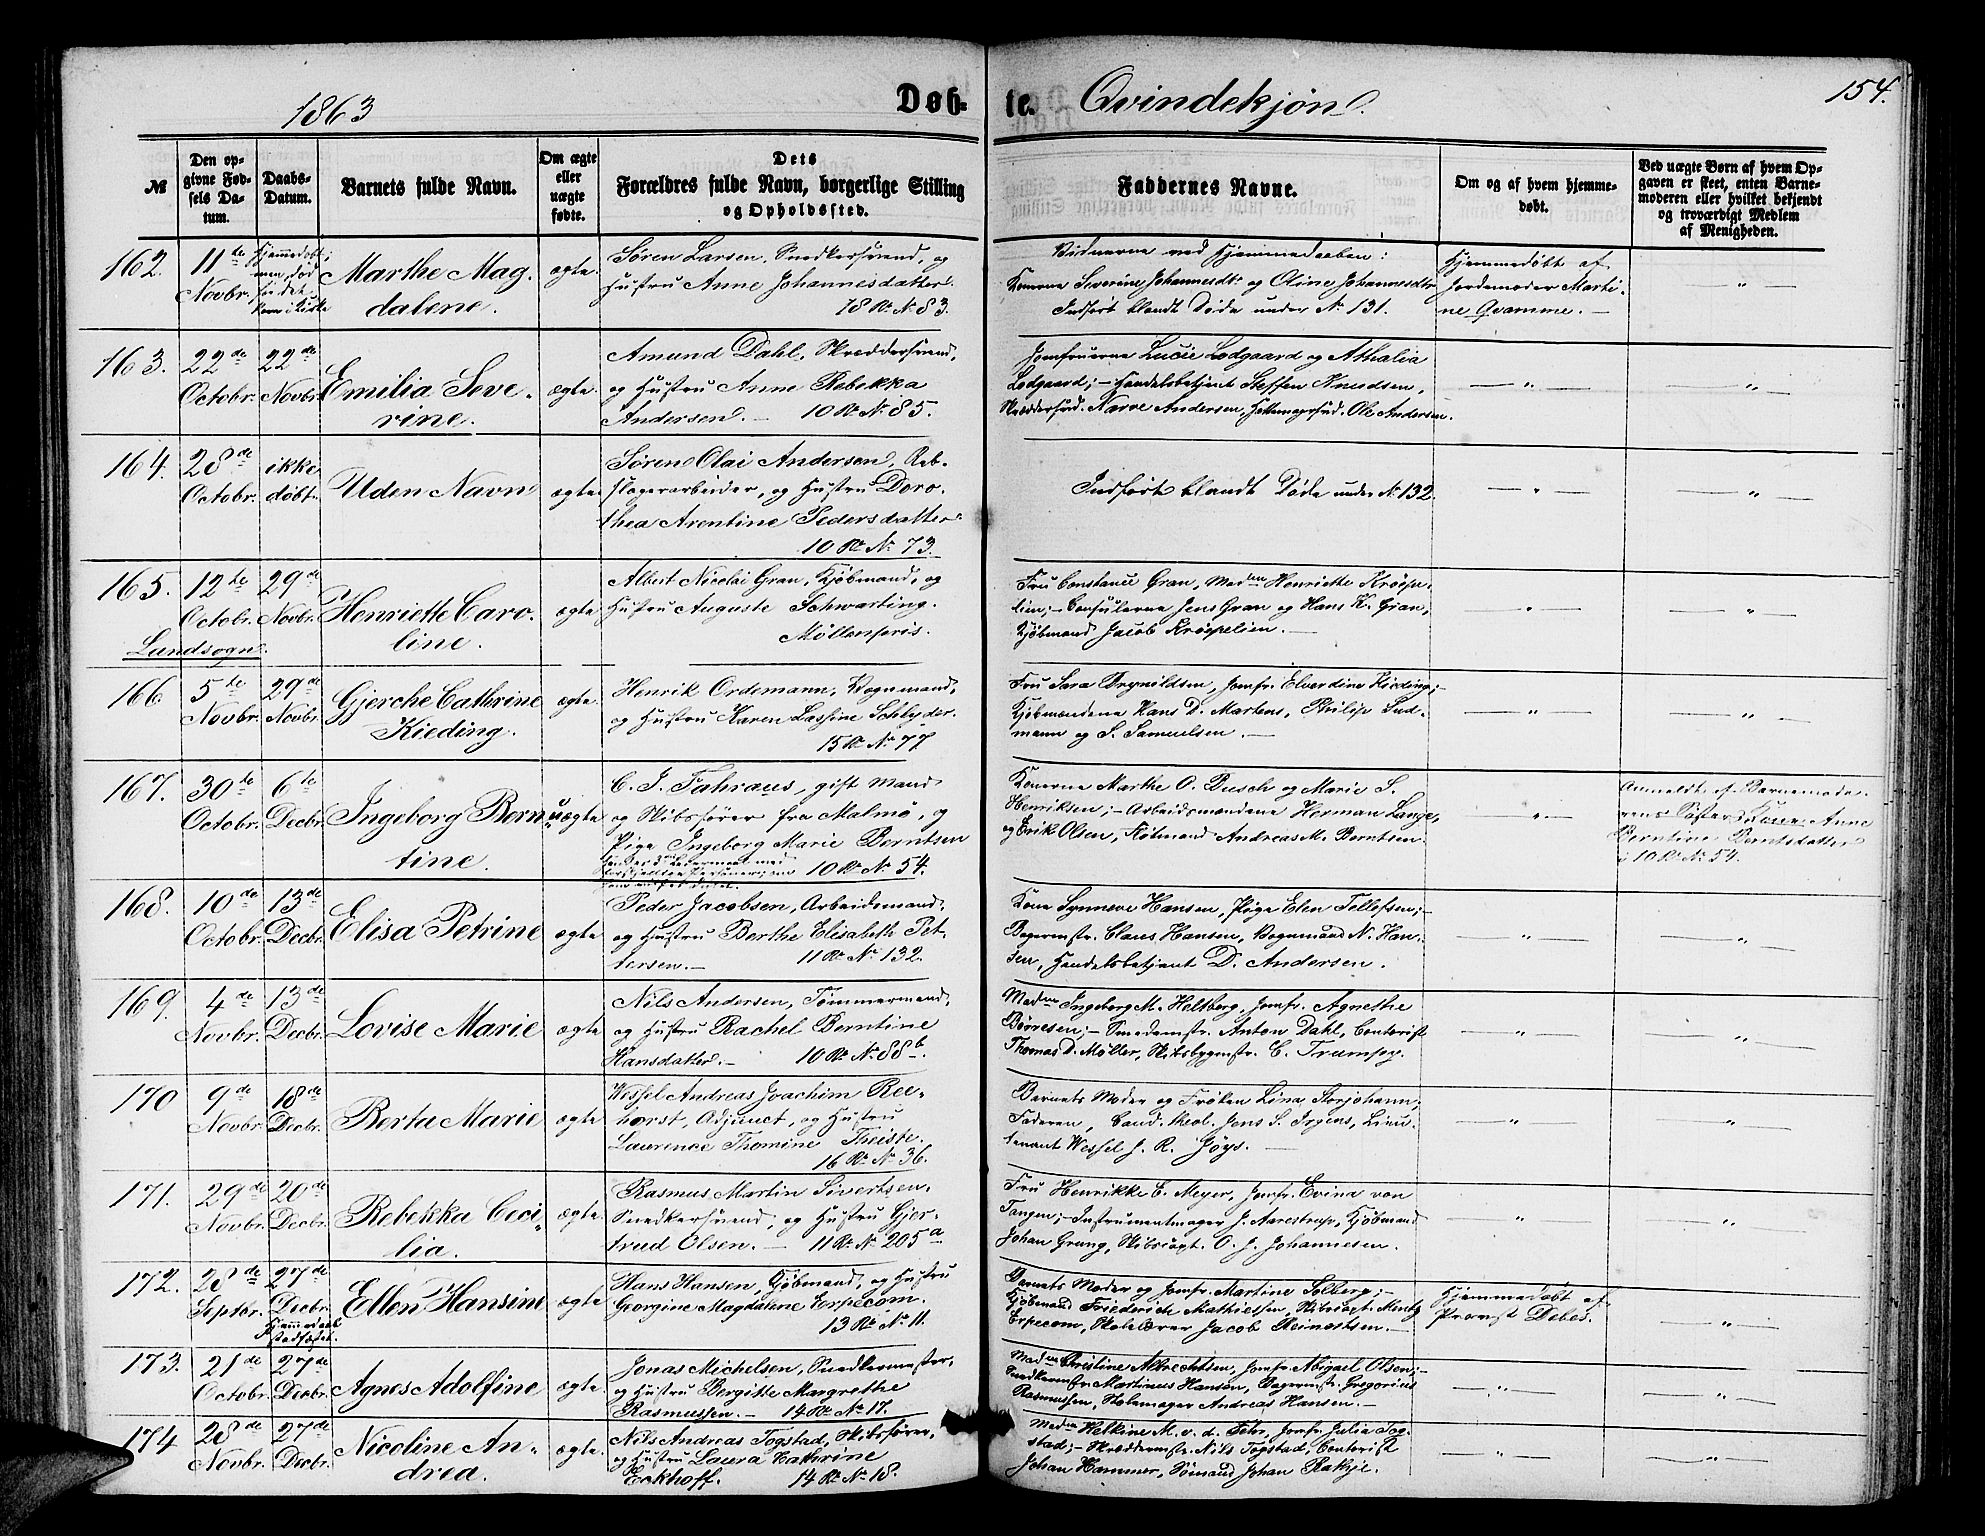 1863
Døb-
te. Qvindekjøn.
154.
№
Den op-
givne Fød-
sels Da-
tum.
Daabs-
Datum.
Barnets fulde Navn.
Om ægte
eller
uægte
fødte.
Dets
Forældres fulde Navn, borgerlige Stilling
og Opholdssted.
Faddernes Navne.
Om og af hvem hjemme-
døbt.
Ved uægte Børn af hvem Op-
gaven er skeet, enten Barne-
moderen eller hvilket bekjendt
og troværdigt Medlem
af Menigheden.
162.
11te
Novbr.
Hjemmedøbt;
men død
Marthe Mag-
dalene.
ægte.
Søren Larsen, Snedkersvend, og
Hustru Anne Johannesdatter.
18 R. No 83.
Vidnerne ved Hjemmedaaben:
Konerne Severine Johannesdtr og Oline Johannesdtr
Indført blandt Døde under No 131.
Hjemmedøbt af
Jordemoder Marti-
ne Qvamme.
163.
22de
Octobr.
22de
Novbr.
Emilia Seve-
rine.
ægte.
Amund Dahl, Skræddersvend,
og Hustru Anne Rebekka
Andersen. 10 R. No 85.
Jomfruerne Lucie Lodgaard og Athalia
Lodgaard; Handelsbetjent Steffen Knudsen,
Skræddersvd. Narve Andersen, Hattemagersvd. Ole Andersen.
164.
28de
Octobr.
ikke
døbt.
Uden Navn
ægte.
Søren Olai Andersen, Reb-
slagerarbeider, og Hustru Doro-
thea Arentine Pedersdatter
10 R. No 73.
Indført blandt Døde under No 132.
165.
12te
Octobr.
29de
Novbr.
Landsogn.
Henriette Caro-
line.
ægte
Albert Nicolai Gran, Kjøbmand, og
Hustru Auguste Schwarting.
Møllenpris.
Fru Constance Gran, Madme Henriette Krøpe-
lien; Consulerne Jens Gran og Hans K. Gran,
Kjøbmand Jacob Krøpelien.
166
5te
Novbr.
29de
Novbr.
Gjerche Cathrine
Kieding.
ægte.
Henrik Ordemann, Vognmand,
og Hustru Karen Lassine Schlyder.
15 R. No 77
Fru Sara Brynildsen, Jomfr. Elverdine Kieding;
Kjøbmændene Hans D. Martens, Philip Sud-
mann og S. Samuelsen.
167.
30te
Octobr.
6te
Decbr.
Ingeborg Bern-
tine.
uægte
C. J. Fahraus, gift Mand
og Skibsfører fra Malmø, og
Pige Ingeborg Marie Berntsen
10 R. No 54.
Konerne Marthe O. Busch og Marie S.
Henriksen; Arbeidsmændene Herman Lange,
og Erik Olsen, Kobmand Andreas M. Berntsen.
Anmeldt af Barnemode-
rens Søster Anne
Berntine Berntsdatter
i 10 R. No 54.
168.
10de
Octobr.
13de
Decbr.
Elisa Petrine
ægte
Peder Jacobsen, Arbeidsmand,
og Hustru Berthe Elisabeth Pet-
tersen. 11 R. No 132.
Kone Synneve Hansen, Pige Elen Tellefsen;
Bagermstr. Claus Hansen, Vognmand N. Han-
sen, Handelsbetjent D. Andersen.
169.
4de
Novbr.
13de
Decbr.
Lovise Marie
ægte
Nils Andersen, Tømmermand,
og Hustru Rachel Berntine
Hansdatter. 10 R. No 88b.
Madme Ingeborg M. Heltberg, Jomfr. Agnethe
Børresen; Smedemstr. Anton Dahl, Contorist
Thomas D. Møller, Skibsbygmstr. C. Trumpy.
170
9de
Novbr.
18de
Decbr.
Berta Marie
ægte
Wessel Andreas Joachim Ree-
horst, Adjunct, og Hustru
Laurence Thomine Theiste.
16 R. No 36.
Barnets Moder og Frøken Lina Storjohann;
Faderen, Cand. theol. Jens S. Irgens, Lieu-
tenant Wessel J. R. Jøys.
171.
29de
Novbr.
20de
Decbr.
Rebekka Ceci-
lia.
ægte.
Rasmus Martin Sivertsen.
Snedkersvend, og Hustru Gjer-
trud Olsen. 11 R. No 205a
Fru Henrikke C. Meyer, Jomfr. Evina von
Tangen; Instrumentmager J. Aarestrup, Kjøbmand
Johan Grung, Skibscapt. O. J. Johannesen.
172.
28de
Septbr.
27de
Decbr.
Hjemmedaab
stadfæstet.
Ellen Hansine
ægte
Hans Hansen, Kjøbmand, og Hustru
Georgine Magdalene Eerpecom.
13 R. No 11.
Barnets Moder og Jomfr. Martine Solberg;
Kjøbmand Friederich Mathiessen, Skibscapt. Mentz
Erpecom, Skolelærer Jacob Reinertsen.
Hjemmedøbt af
Provst Debes.
173.
21de
Octobr.
27de
Decbr.
Agnes Adolfine
ægte.
Jonas Michelsen, Snedkermester,
og Hustru Bergitte Margrethe
Rasmussen. 14 R. No 17.
Madme Christine Albrechtsen, Jomfr. Abigael Olsen;
Snedkermstr Martinus Hansen, Bagermstr. Gregorius
Rasmussen, Stolemager Andreas Hansen.
174
28de
Novbr.
27de
Decbr.
Nicoline An-
drea.
ægte.
Nils Andreas Togstad, Skibsfører,
og Hustru Laura Kathrine
Eckhoff. 14 R. No 18.
Madme Helkine M. v. d. Fehr, Jomfr. Julia Tog-
stad; Skræddermstr. Nils Togstad, Contorist
Johan Hammer, Sømand Johan Rakje.